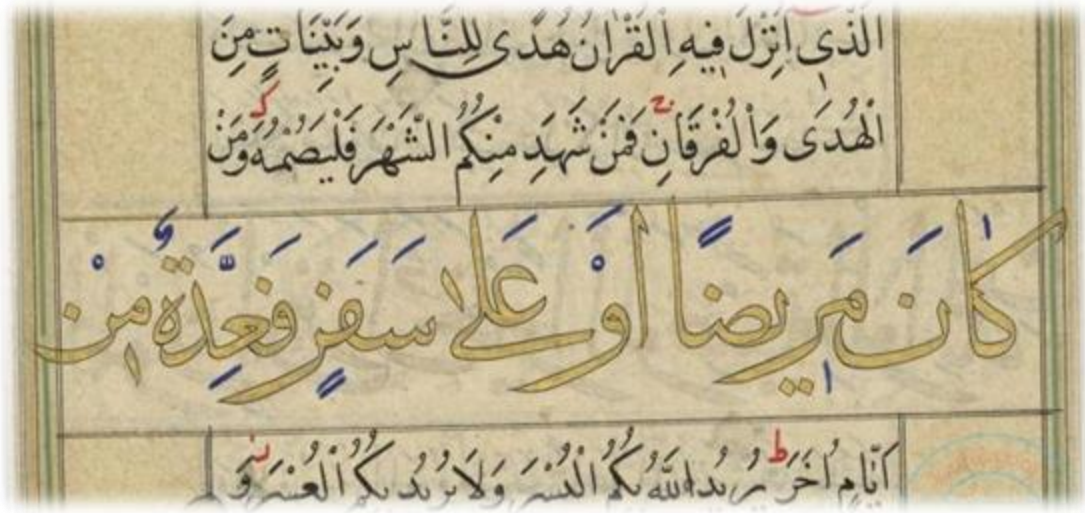 الَّذِي أُنْزِلَ فِيهِ الْقُرْآنُ هُدًى لِلنَّاسِ وَبَيِّنَاتٍ مِنَ
الْهُدَى وَالْفُرْقَانِ فَمَنْ شَهِدَ مِنْكُمُ الشَّهْرَ فَلْيَصُمْهُ وَمَنْ
كَانَ مَرِيضًا أَوْ عَلَى سَفَرٍ فَعِدَّةٌ مِنْ
أَيَّامٍ أُخَرَ يُرِيدُ اللَّهُ بِكُمُ الْيُسْرَ وَلَا يُرِيدُ بِكُمُ الْعُسْرَ